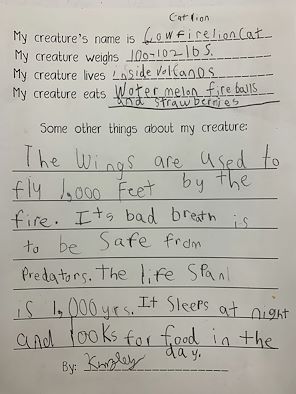 Cat lion
My creature's name is Cowfirelioncat
My creature weighs 100-102 lbs.
My creature lives inside volcanos
My creature eats Watermelon fireballs
and strawberries
Some other things about my creature:
The Wings are used to
fly 1,000 feet by the
fire. Its bad breath is
to be Safe from
Predators. The life Span
is 1,000 yrs. It Sleeps at night
and looks for food in the
day.
By: